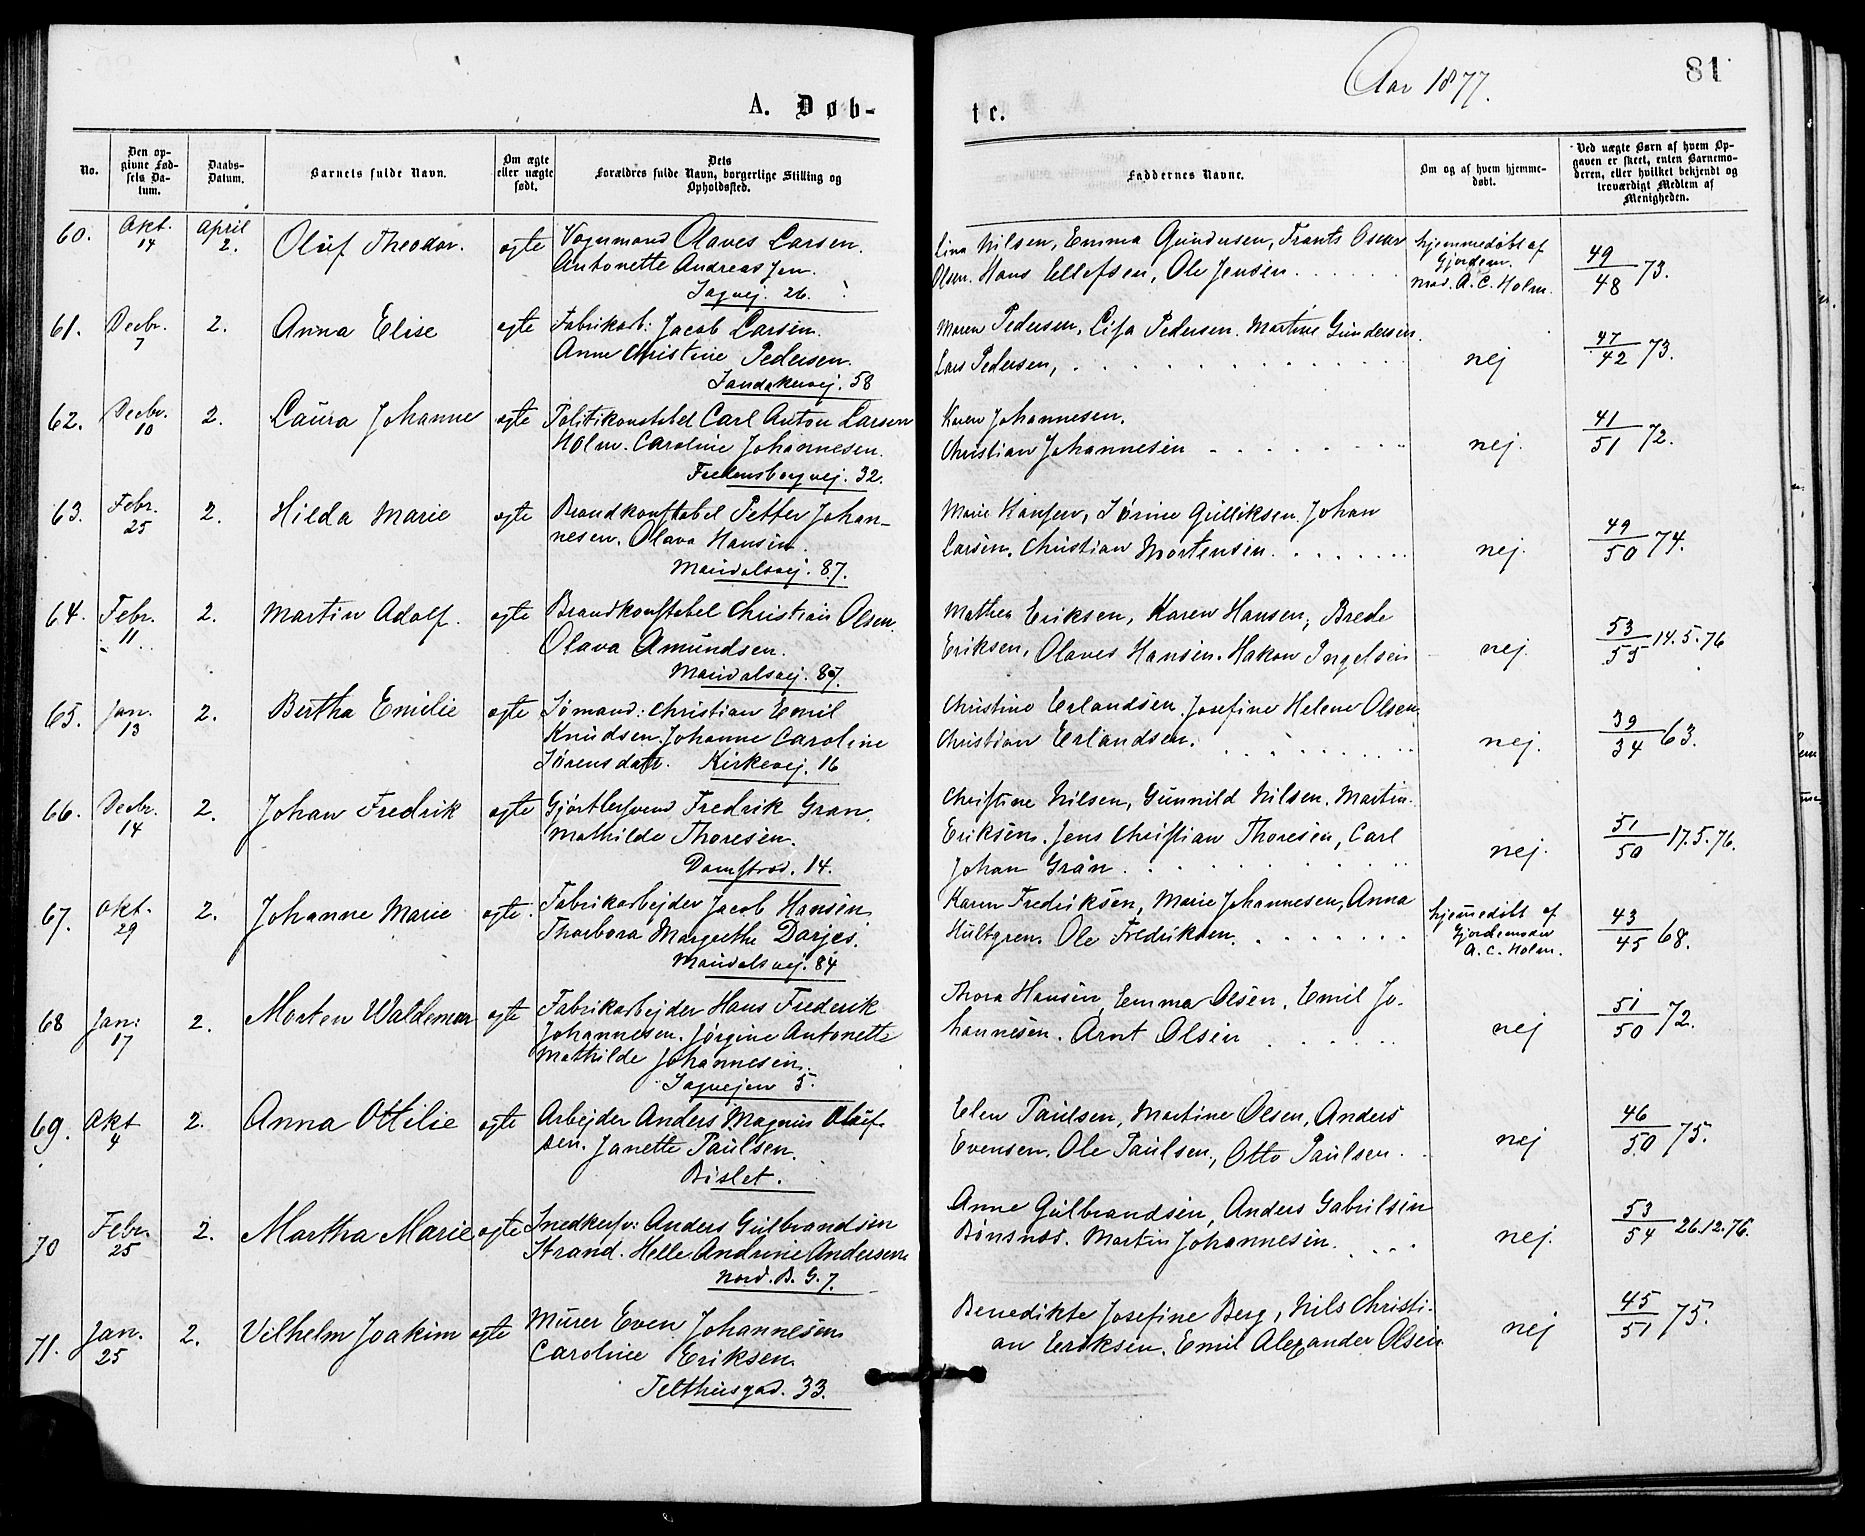 Aar 1877.
81
A. Døb-
te.
No.
Den op-
givne Fød-
sels Da-
tum.
Daabs-
Datum.
Barnets fulde Navn.
Om ægte
eller uægte
født.
Dets
Forældres fulde Navn, borgerlige Stilling og
Opholdssted.
Faddernes Navne.
Om og af hvem hjemme-
døbt.
Ved uægte Børn af hvem Op-
gaven er skeet, enten Barnemo-
deren, eller hvilket bekjendt og
troværdigt Medlem af
Menigheden.
60.
Okt.
14
April
2.
Oluf Theodor.
egte
Vognmand Olaves Larsen.
Antonette Andreas Jen.
Sagvej. 26.
Lina Nilsen, Emma Gundersen, Frants Oscar
Olsen. Hans Ellefsen, Ole Jensen
hjemmedøbt af
Gjordem.
mad. A. C. Holm.
49
48 73.
61.
Decbr.
7
2.
Anna Elise
egte
Fabrikarb: Jacob Larsen.
Anne Christine Pedersen.
Sandakervej. 58
Maren Pedersen, Lisa Pedersen. Martine Gundersen.
Lars Pedersen,
nej
47
42 73.
62.
Decbr.
10
2.
Laura Johanne
egte
Politikonstabel Carl Anton Larsen
Holm. Caroline Johannesen.
Fredensborgvej. 32.
Karen Johannesen.
Christian Johannesen
nej.
41
51 72.
63.
Febr.
25
2.
Hilda Marie
egte
Brandkonstabel Petter Johan-
nesen. Olava Hansen.
Maridalsvej. 87.
Marie Hansen, Sørine Gulliksen. Johan
Larsen. Christian Mortensen.
nej.
49
50 74.
64.
Febr.
11
2.
Martin Adolf.
egte
Brandkonstabel Christian Olsen.
Olava Amundsen.
Maridalsvej. 87.
Mathea Eriksen, Karen Hansen, Brede
Eriksen, Olaves Hansen. Hakon Ingelsen
nej.
53
55 14.5.76
65.
Jan.
13
2.
Bertha Emilie
egte
Sømand: Christian Emil
Knudsen. Johanne Caroline
Sørensdatr. Kirkevej. 16
Christine Erlandsen. Josefine Helene Olsen.
Christian Erlandsen.
nej.
39
34 63.
66.
Decbr.
14
2.
Johan Fredrik
egte
Gjørtlersvend Fredrik Gran.
Mathilde Thoresen.
Damstræd. 14.
Christine Nilsen, Gunnild Nilsen. Martin
Eriksen. Jens Christian Thoresen, Carl
Johan Gran.
nej.
51
50 17.5.76.
67.
Okt.
29
2.
Johanne Marie
egte.
Fabrikarbejder Jacob Hansen
Thorbora Margrethe Darjes.
Maridalsvej. 84
Karen Fredriksen, Marie Johannesen, Anna
Hultgren. Ole Fredriksen.
hjemmedøbt af
Gjordemoder
A. C. Holm.
43
45 68.
68
Jan:
17
2.
Morten Waldemar
egte
Fabrikarbejder Hans Frederik
Johannesen. Jørgine Antonette
Mathilde Johannesen.
Sagvejen 5.
Thora Hansen, Emma Olsen, Emil Jo-
hannesen. Arnt Olsen
nej
51
50 72.
69.
Okt
4
2.
Anna Ottilie
egte
Arbejder Anders Magnus Oluf-
sen. Janette Paulsen.
Bislet.
Elen Paulsen, Martine Olsen, Anders
Evensen. Ole Paulsen, Otto Paulsen.
nej
46
50 75.
70
Febr.
25
2.
Martha Marie
egte
Snedkersv: Anders Gulbrandsen
Strand. Helle Andrine Andersen.
Nord. B. G. 7.
Anne Gulbrandsen, Anders Gabrilsen
Bønsnæs. Martin Johannesen.
nej.
53
54 26.12.76.
71.
Jan.
25
2.
Vilhelm Joakim
egte
Murer Even Johannesen
Caroline Eriksen.
Telthusgad. 33.
Benedikte Josefine Berg, Nils Christi-
an Eriksen. Emil Alexander Olsen
nej
45
51 75.